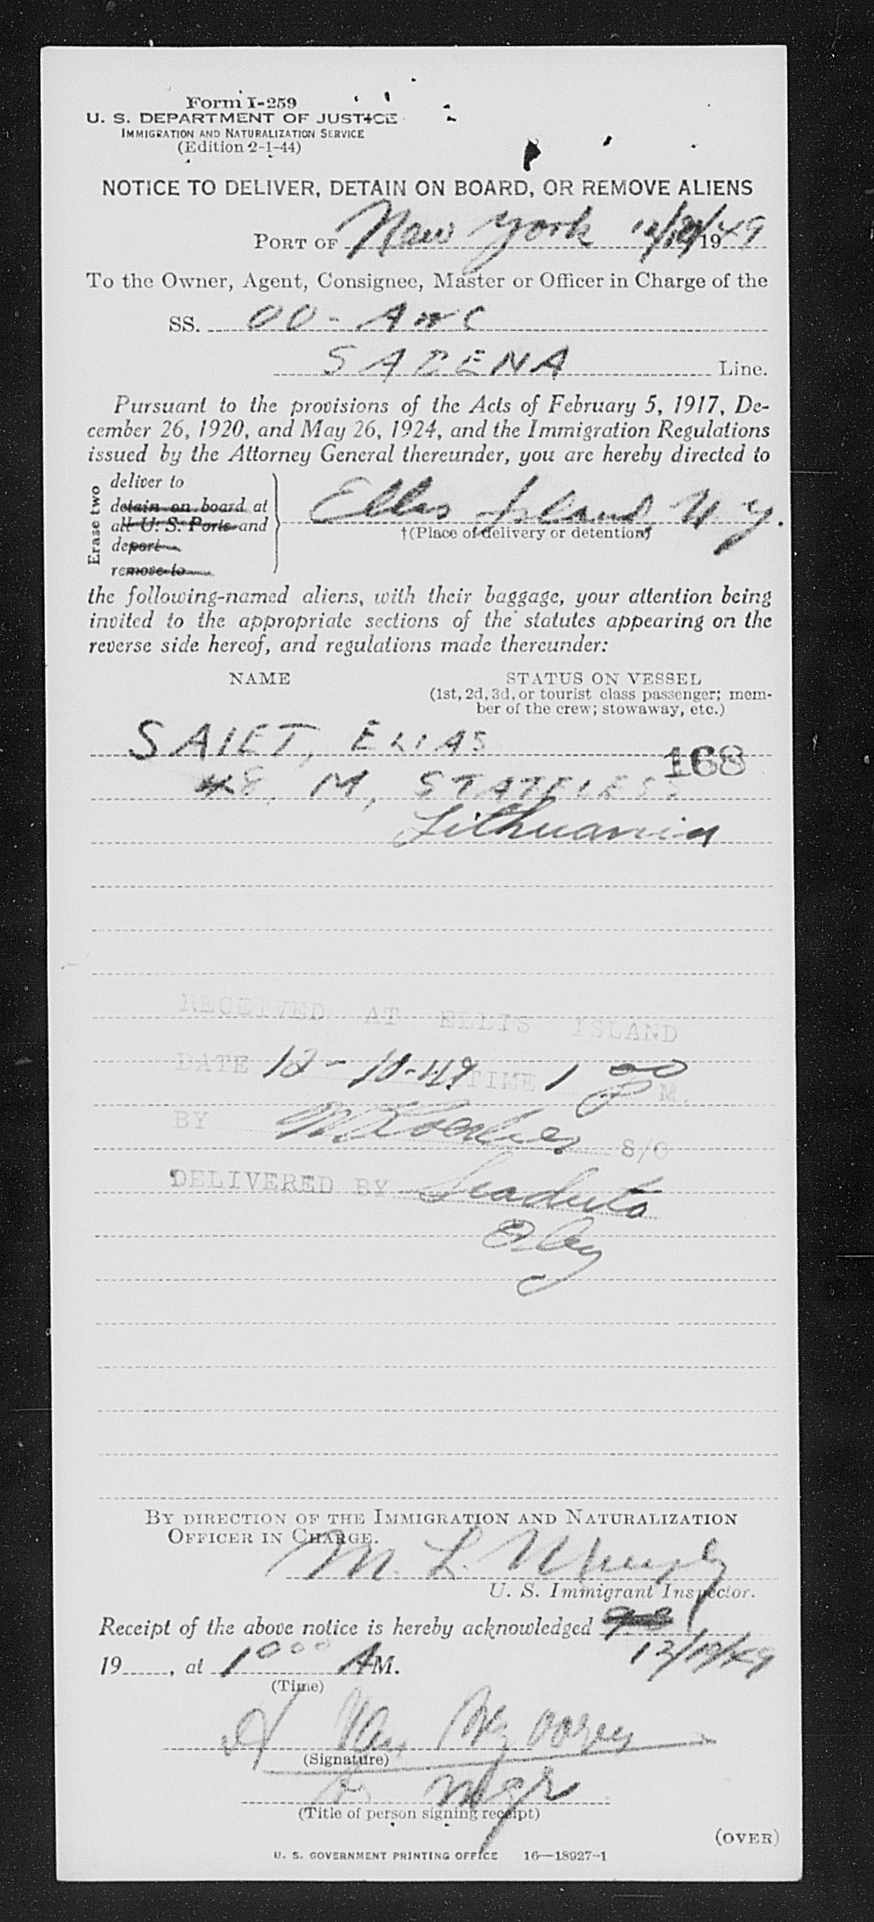 Form I-259
U. S. DEPARTMENT OF JUSTICE
IMMIGRATION AND NATURALIZATION SERVICE
(Edition 2-1-44)
NOTICE TO DELIVER, DETAIN ON BOARD, OR REMOVE ALIENS
PORT OF New York 12/10/1949
To the Owner, Agent, Consignee, Master or Officer in Charge of the
SS. OO-AWC
SABENA Line.
Pursuant to the provisions of the Acts of February 5, 1917, De-
cember 26, 1920, and May 26, 1924, and the Immigration Regulations
issued by the Attorney General thereunder, you are hereby directed to
Erase two
deliver to
detain on board at
all U. S. Ports and
deport
remove to
Ellis Island, N.Y.
†(Place of delivery or detention)
the following-named aliens, with their baggage, your attention being
invited to the appropriate sections of the statutes appearing on the
reverse side hereof, and regulations made thereunder:
NAME STATUS ON VESSEL
(1st, 2d, 3d, or tourist class passenger; mem-
ber of the crew; stowaway, etc.)
SAIET, ELIAS
168
48, M, STATELESS
Lithuania
RECEIVED AT ELLIS ISLAND
DATE 12-10-49 TIME 1 00 P M.
BY S/O
DELIVERED BY
BY DIRECTION OF THE IMMIGRATION AND NATURALIZATION
OFFICER IN CHARGE.
M. L. Murphy
U. S. Immigrant Inspector.
Receipt of the above notice is hereby acknowledged
12/10/49
19......, at 10 00 AM.
(Time)
(Signature)
mgr
(Title of person signing receipt)
(OVER)
U. S. GOVERNMENT PRINTING OFFICE 16—18927-1